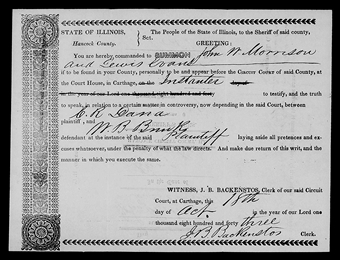 STATE OF ILLINOIS,
Hancock County.
Sct.
The People of the State of Illinois, to the Sheriff of said county,
GREETING:
You are hereby commanded to SUMMON John W. Morrison
and Lewis Evans
if to be found in your County, personally to be and appear before the CIRCUIT COURT of said County, at
the Court House, in Carthage, on the Instanter
in the year of our Lord one thousand eight hundred and forty, to testify, and the truth
to speak, in relation to a certain matter in controversy, now depending in the said Court, between
C. R. Dama
plaintiff, and
W. B.
defendant at the instance of the said Plaintiff laying aside all pretences and ex-
cuses whatsoever, under the penalty of what the law directs. And make due return of this writ, and the
manner in which you execute the same.
WITNESS, J. B. BACKENSTOS, Clerk of our said Circuit
Court, at Carthage, this 18th
day of Oct. in the year of our Lord one
thousand eight hundred and forty three
J. B. Backenstos Clerk.